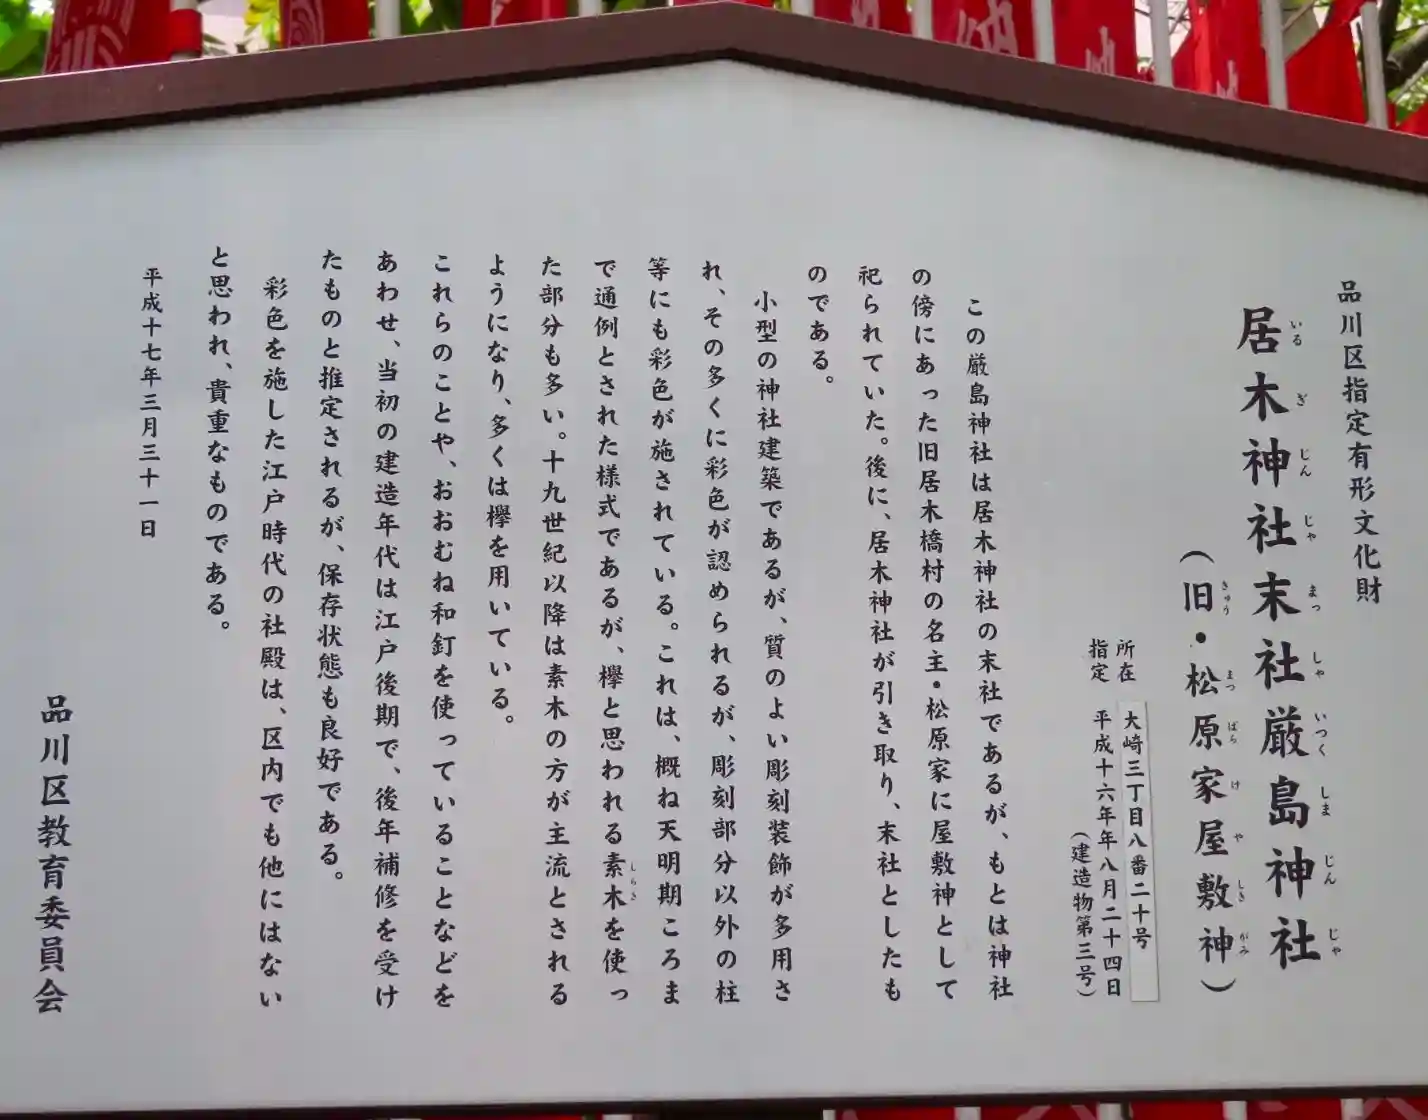 品川区指定有形文化財
居木神社末社厳島神社
いるぎじんじゃまつしゃいつくしまじんじゃ
（旧・松原家屋敷神）
きゅう まつばらけやしきがみ
所在 大崎三丁目八番二十号
指定 平成十六年年八月二十四日
（建造物第三号）
この厳島神社は居木神社の末社であるが、もとは神社
の傍にあった旧居木橋村の名主・松原家に屋敷神として
祀られていた。後に、居木神社が引き取り、末社としたも
のである。
小型の神社建築であるが、質のよい彫刻装飾が多用さ
れ、その多くに彩色が認められるが、彫刻部分以外の柱
等にも彩色が施されている。これは、概ね天明期ころま
で通例とされた様式であるが、欅と思われる素木を使っ
しらき
た部分も多い。十九世紀以降は素木の方が主流とされる
ようになり、多くは欅を用いている。
これらのことや、おおむね和釘を使っていることなどを
あわせ、当初の建造年代は江戸後期で、後年補修を受け
たものと推定されるが、保存状態も良好である。
彩色を施した江戸時代の社殿は、区内でも他にはない
と思われ、貴重なものである。
平成十七年三月三十一日
品川区教育委員会